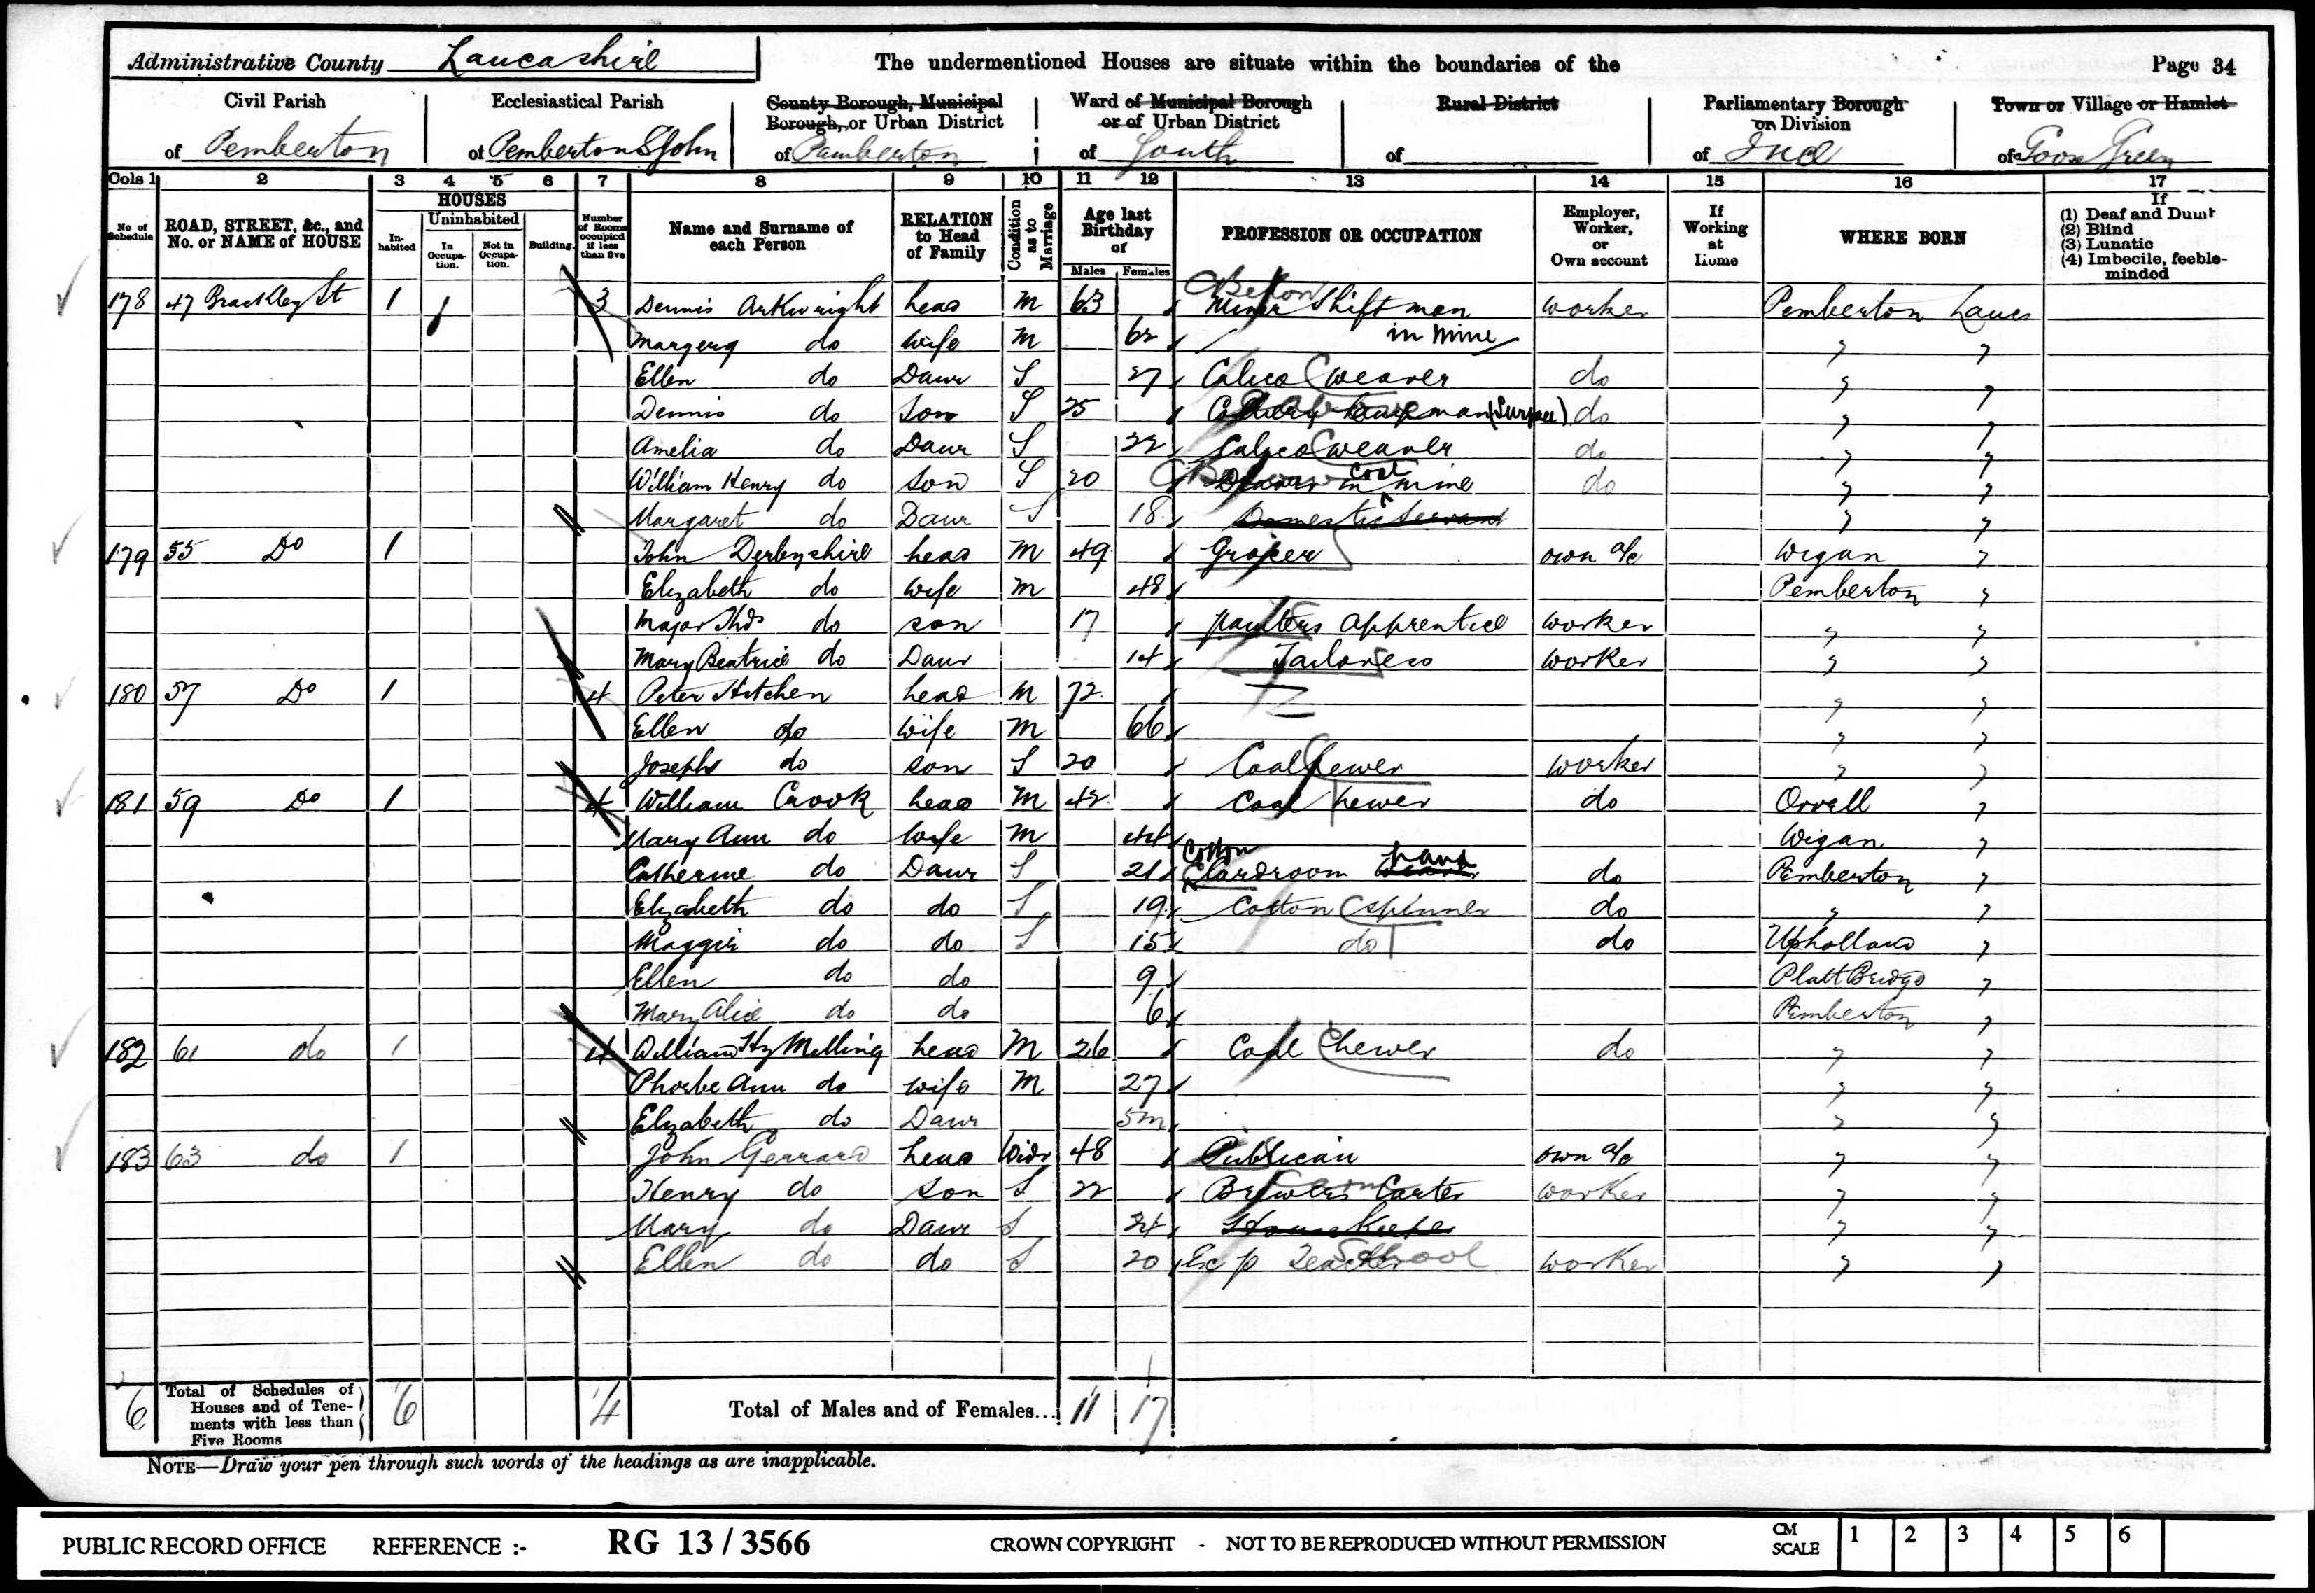 Administrative County Lancashire The undermentioned Houses are situate within the boundaries of the Page 34
Civil Parish of Pemberton
Ecclesiastical Parish of Pemberton St John
County Borough, Municipal Borough, or Urban District of Pemberton
Ward of Municipal Borough or of Urban District of South
Rural District of
Parliamentary Borough or Division of Ince
Town or Village or Hamlet of Goose Green
Cols 1 2 3 4 5 6 7 8 9 10 11 12 13 14 15 16 17
No. of Schedule
ROAD, STREET, &c., and No. or NAME of HOUSE
HOUSES
Inhabited
Uninhabited
In Occupation.
Not in Occupation.
Building.
Number of Rooms occupied if less than five
Name and Surname of each Person
RELATION to Head of Family
Condition as to Marriage
Age last Birthday of
Males Females
PROFESSION OR OCCUPATION
Employer, Worker, or Own account
If Working at Home
WHERE BORN
If
(1) Deaf and Dumb
(2) Blind
(3) Lunatic
(4) Imbecile, feeble-minded
178 47 Brackley St 1 3 Dennis Arkwright head M 63 Miner Shift man worker Pemberton Lancs
Margery do wife M 62 in mine " "
Ellen do Daur S 27 Calico weaver do " "
Dennis do Son S 25 Colliery Lamp man (Surface) do " "
Amelia do Daur S 22 Calico weaver do " "
William Henry do son S 20 Drawer in coal mine do " "
Margaret do Daur S 18 Domestic Servant " "
179 55 Do 1 John Derbyshire head M 49 Grocer own a/c Wigan "
Elizabeth do wife M 48 Pemberton "
Major Thos do son 17 painters apprentice worker " "
Mary Beatrice do Daur 14 Tailoress worker " "
180 57 Do 1 4 Peter Hitchen head M 72 " "
Ellen do wife M 66 " "
Joseph do son S 20 Coal hewer worker " "
181 59 Do 1 4 William Crook head M 42 Coal hewer do Orrell "
Mary Ann do wife M 44 Wigan "
Catherine do Daur S 21 Cotton Cardroom hand do Pemberton "
Elizabeth do do S 19 Cotton spinner do " "
Maggie do do S 15 do do Upholland "
Ellen do do 9 Platt Bridge "
Mary Alice do do 6 Pemberton "
182 61 do 1 4 William Hy Melling head M 26 Coal hewer do " "
Phoebe Ann do wife M 27 " "
Elizabeth do Daur 5m " "
183 63 do 1 John Gerrard head Widr 48 Publican own a/c " "
Henry do son S 22 Brewers Carter worker " "
Mary do Daur S 24 Housekeeper " "
Ellen do do S 20 Ex p Teacher School worker " "
6 Total of Schedules of Houses and of Tenements with less than Five Rooms 6 4 Total of Males and of Females... 11 17
NOTE—Draw your pen through such words of the headings as are inapplicable.
PUBLIC RECORD OFFICE REFERENCE :- RG 13 / 3566 CROWN COPYRIGHT - NOT TO BE REPRODUCED WITHOUT PERMISSION CM SCALE 1 2 3 4 5 6